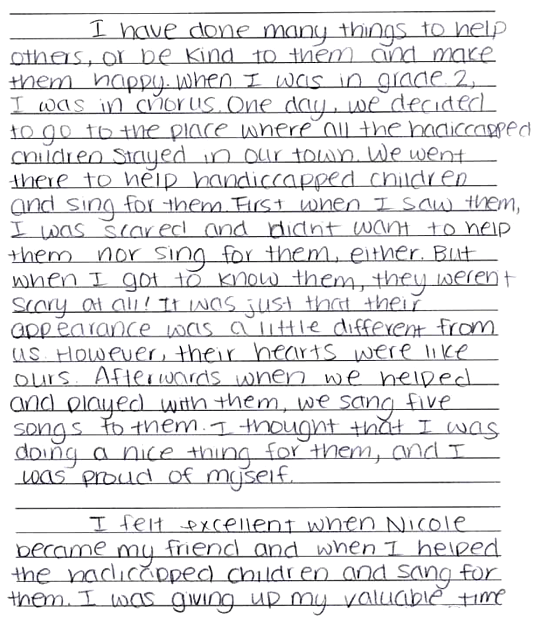 I have done many things to help
others, or be kind to them and make
them happy. When I was in grade 2,
I was in chorus. One day, we decided
to go to the place where all the hadiccapped
children stayed in our town. We went
there to help handiccapped children
and sing for them. First when I saw them,
I was scared and didn't want to help
them nor sing for them, either. But
when I got to know them, they weren't
scary at all! It was just that their
appearance was a little different from
us. However, their hearts were like
ours. Afterwards when we helped
and played with them, we sang five
songs to them. I thought that I was
doing a nice thing for them, and I
was proud of myself.
I felt excellent when Nicole
became my friend and when I helped
the hadiccapped children and sang for
them. I was giving up my valuable time